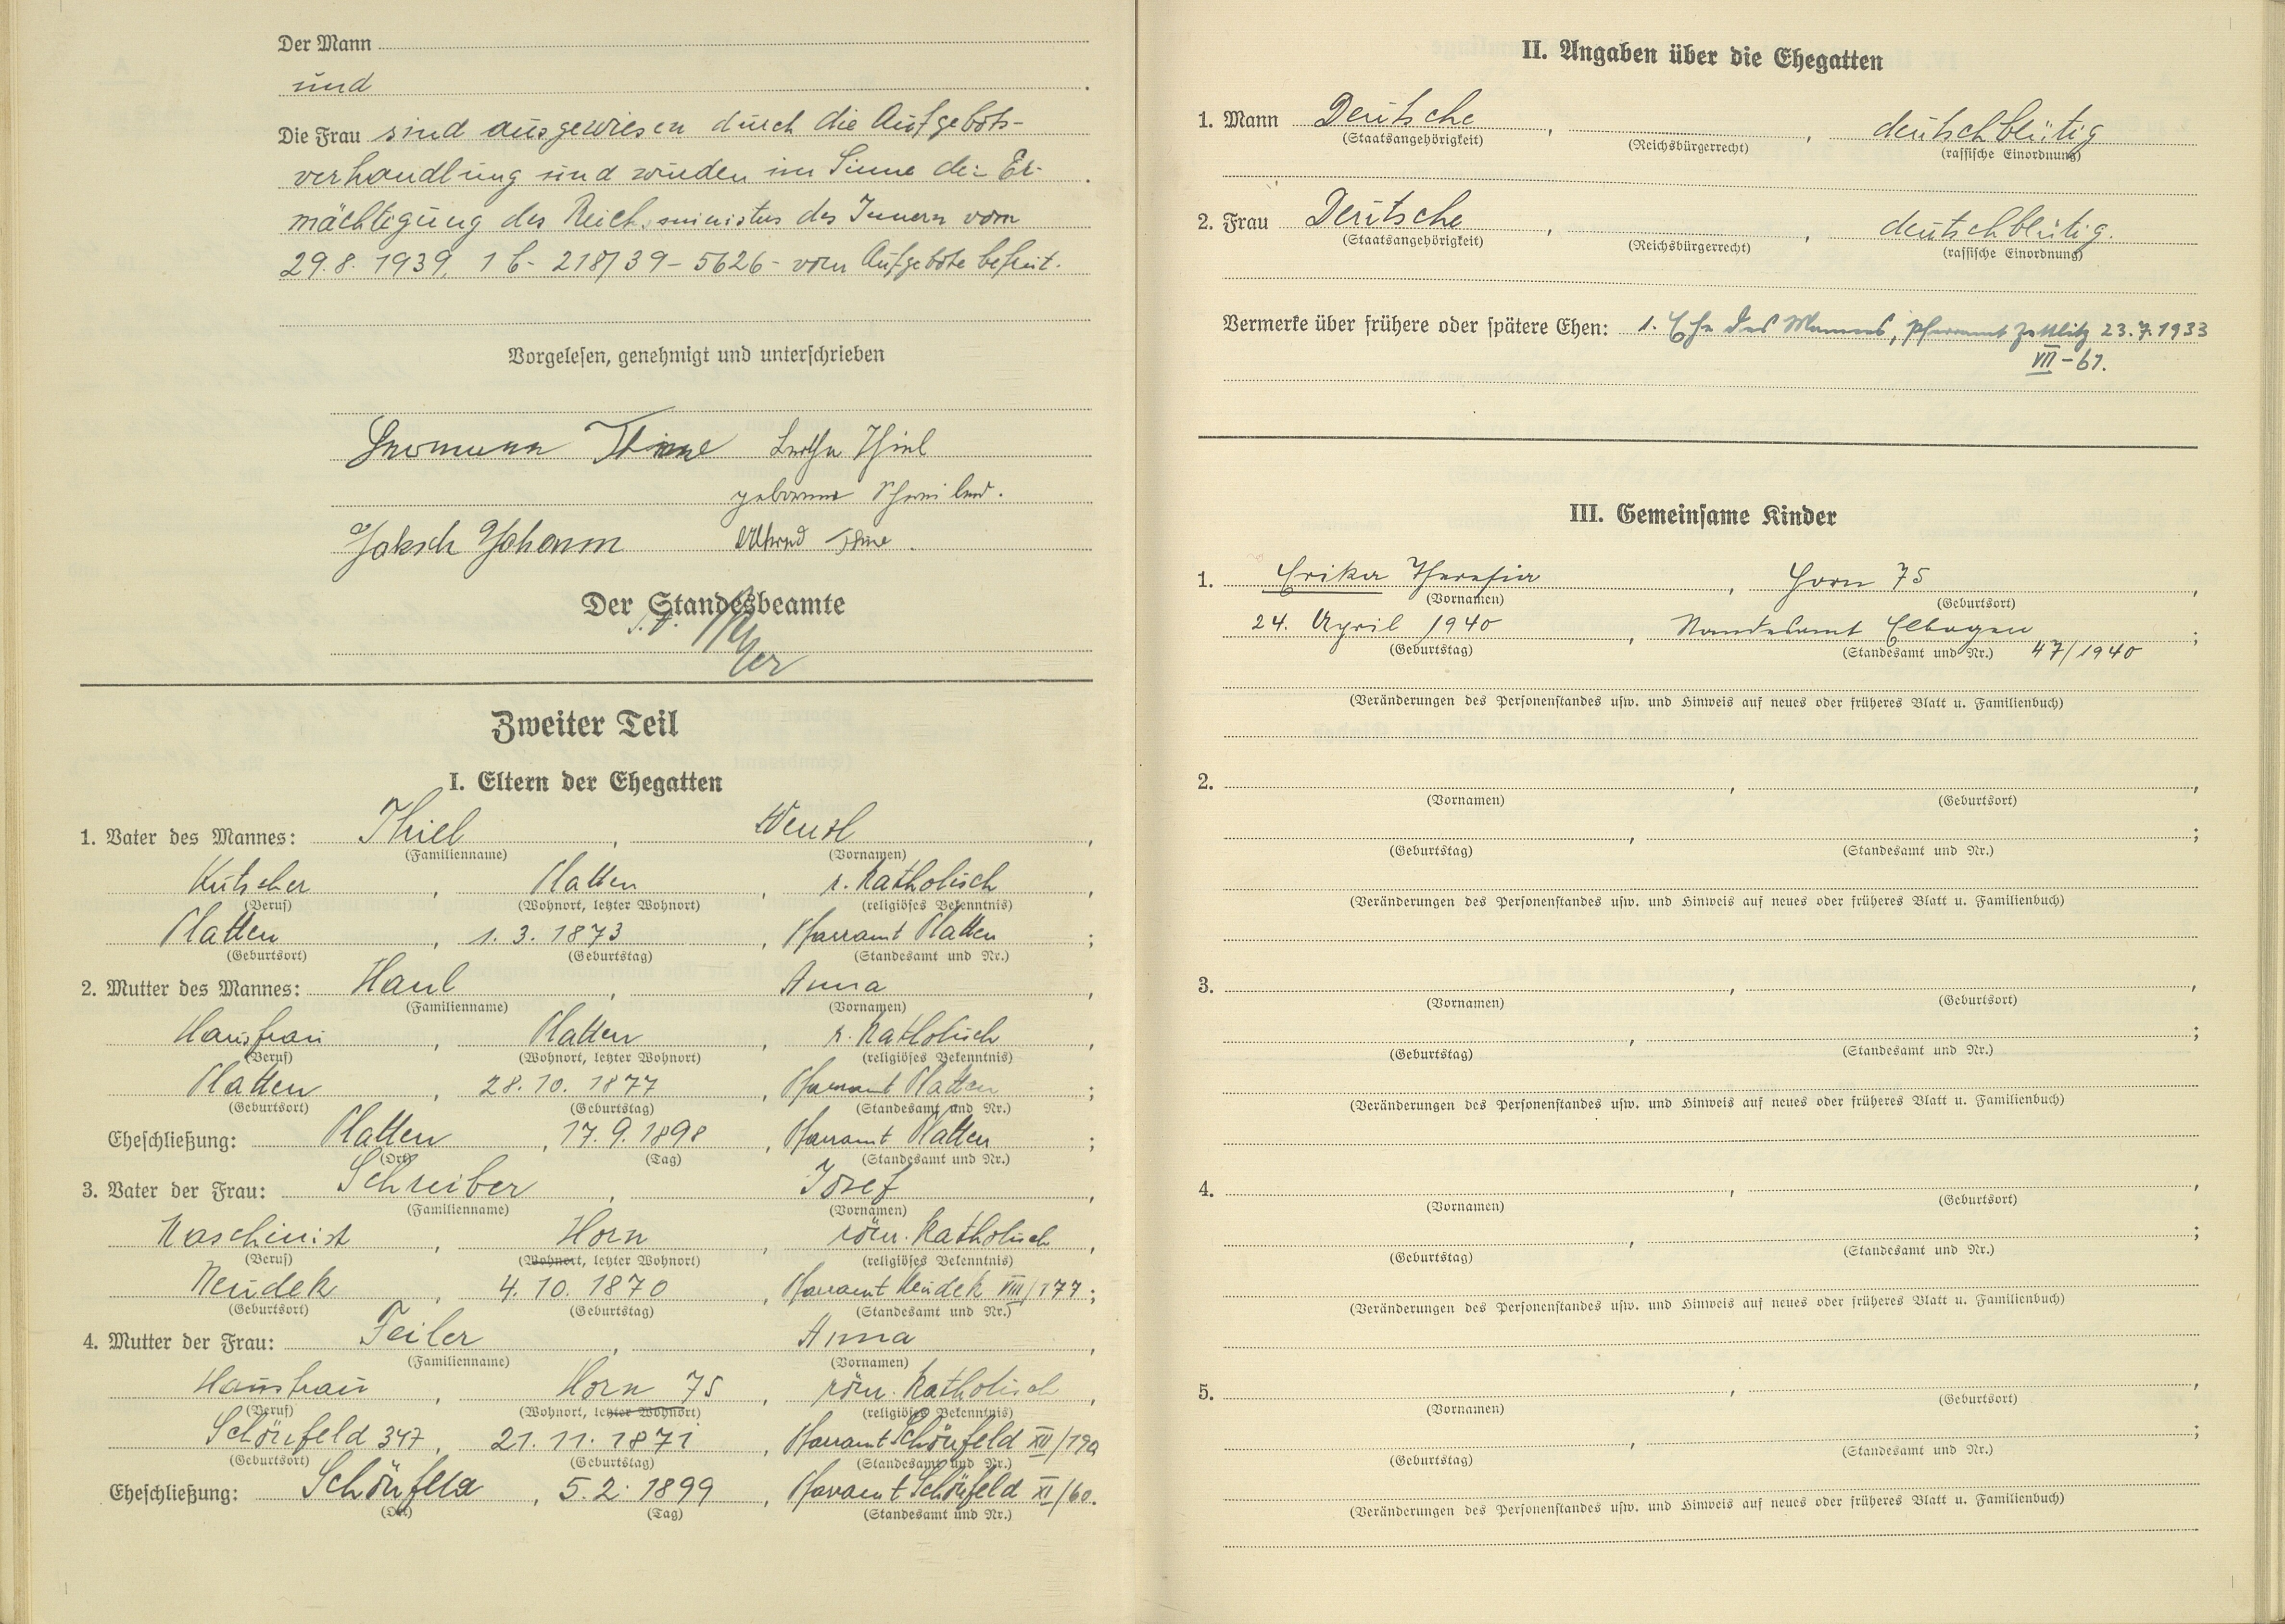 Der Mann
und
Die Frau sind ausgewiesen durch die Aufgebots-
verhandlung und wurden im Sinne der Er-
mächtigung des Reichsministers des Innern vom
29.8. 1939, 1 b - 218/39 - 5626 - vom Aufgebote befreit.
Vorgelesen, genehmigt und unterschrieben
Hermann Thiel
geborene Schreiber.
Jaksch Johann
Der Standesbeamte
Zweiter Teil
I. Eltern der Ehegatten
1. Vater des Mannes: Thiel, Wenzl,
(Familienname) (Vornamen)
Kutscher, Platten, r. katholisch,
(Beruf) (Wohnort, letzter Wohnort) (religiöses Bekenntnis)
Platten, 1. 3. 1873, Pfarramt Platten;
(Geburtsort) (Geburtstag) (Standesamt und Nr.)
2. Mutter des Mannes: Haul, Anna,
(Familienname) (Vornamen)
Hausfrau, Platten, r. katholisch,
(Beruf) (Wohnort, letzter Wohnort) (religiöses Bekenntnis)
Platten, 28. 10. 1877, Pfarramt Platten;
(Geburtsort) (Geburtstag) (Standesamt und Nr.)
Eheschließung: Platten, 17. 9. 1898, Pfarramt Platten;
(Ort) (Tag) (Standesamt und Nr.)
3. Vater der Frau: Schreiber, Josef,
(Familienname) (Vornamen)
Maschinist, Horn, röm. katholisch,
(Beruf) (Wohnort, letzter Wohnort) (religiöses Bekenntnis)
Neudek, 4. 10. 1870, Pfarramt Neudek VIII/177;
(Geburtsort) (Geburtstag) (Standesamt und Nr.)
4. Mutter der Frau: Feiler, Anna,
(Familienname) (Vornamen)
Hausfrau, Horn 75, röm. katholisch,
(Beruf) (Wohnort, letzter Wohnort) (religiöses Bekenntnis)
Schönfeld 347, 21. 11. 1871, Pfarramt Schönfeld XII/190
(Geburtsort) (Geburtstag) (Standesamt und Nr.)
Eheschließung: Schönfeld, 5. 2. 1899, Pfarramt Schönfeld XI/60.
(Ort) (Tag) (Standesamt und Nr.)
II. Angaben über die Ehegatten
1. Mann Deutsche, , deutschblütig
(Staatsangehörigkeit) (Reichsbürgerrecht) (rassische Einordnung)
2. Frau Deutsche, , deutschblütig.
(Staatsangehörigkeit) (Reichsbürgerrecht) (rassische Einordnung)
Vermerke über frühere oder spätere Ehen: 1. Ehe des Mannes, Pfarramt Zettlitz 23.7.1933
VII - 61.
III. Gemeinsame Kinder
1. Erika Theresia, Horn 75,
(Vornamen) (Geburtsort)
24. April 1940, Standesamt Elbogen
(Geburtstag) (Standesamt und Nr.) 47/1940;
(Veränderungen des Personenstandes usw. und Hinweis auf neues oder früheres Blatt u. Familienbuch)
2. , ,
(Vornamen) (Geburtsort)
, ;
(Geburtstag) (Standesamt und Nr.)
(Veränderungen des Personenstandes usw. und Hinweis auf neues oder früheres Blatt u. Familienbuch)
3. , ,
(Vornamen) (Geburtsort)
, ;
(Geburtstag) (Standesamt und Nr.)
(Veränderungen des Personenstandes usw. und Hinweis auf neues oder früheres Blatt u. Familienbuch)
4. , ,
(Vornamen) (Geburtsort)
, ;
(Geburtstag) (Standesamt und Nr.)
(Veränderungen des Personenstandes usw. und Hinweis auf neues oder früheres Blatt u. Familienbuch)
5. , ,
(Vornamen) (Geburtsort)
, ;
(Geburtstag) (Standesamt und Nr.)
(Veränderungen des Personenstandes usw. und Hinweis auf neues oder früheres Blatt u. Familienbuch)